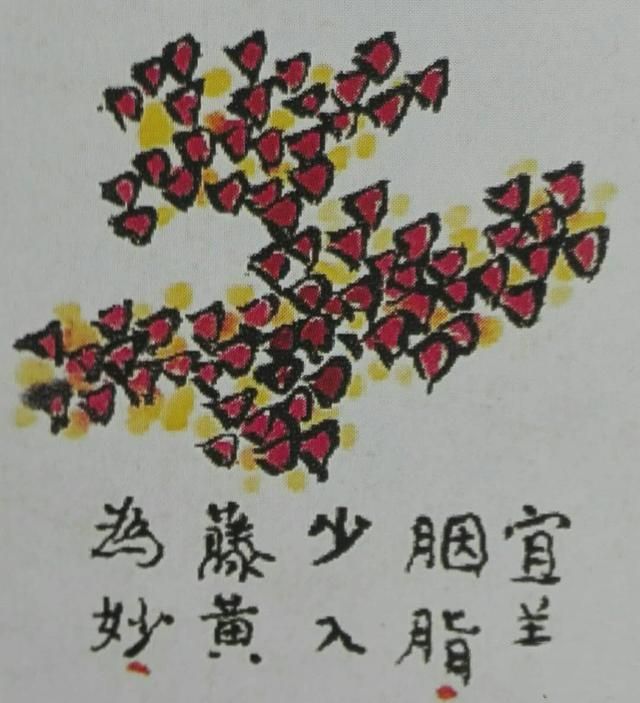 宜
胭脂
少入
藤黄
為妙